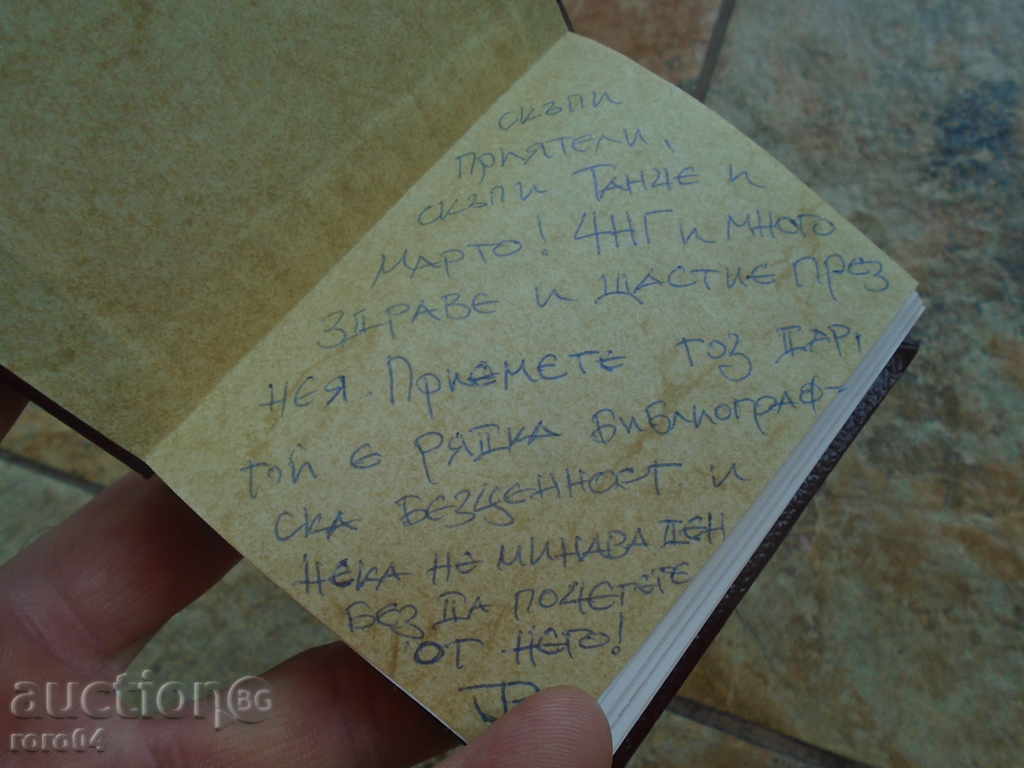 скъпи
приятели,
скъпи Танче и
Марто! ЧНГ и много
здраве и щастие през
нея. Приемете тоз дар,
той е рядка библиограф-
ска безценност и
нека не минава ден
без да почетете
от него!
auctionBG
roro64